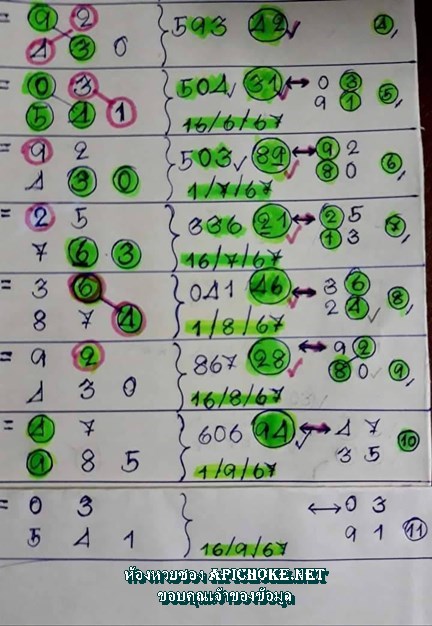 = 9 2 } 593 42 ✓ 4,
4 3 0
= 0 3 } 504 ✓ 31 ✓ ↔ 0 3 5,
5 4 1 9 1
16/6/67
= 9 2 } 503 ✓ 89 ↔ 9 2 6,
4 3 0 8 0
1/7/67
= 2 5 } 336 21 ↔ 2 5 7,
7 6 3 1 3
16/7/67
= 3 6 } 041 46 ↔ 3 6 8,
8 7 4 2 4 ✓
1/8/67
= 9 2 } 867 28 ↔ 9 2
4 3 0 8 0 9,
16/8/67
= 4 7 } 606 94 ↔ 4 7 10
9 8 5 3 5
1/9/67
= 0 3 } ↔ 0 3
5 4 1 9 1 11
16/9/67
ห้องหวยซอง APICHOKE.NET
ขอบคุณเจ้าของข้อมูล